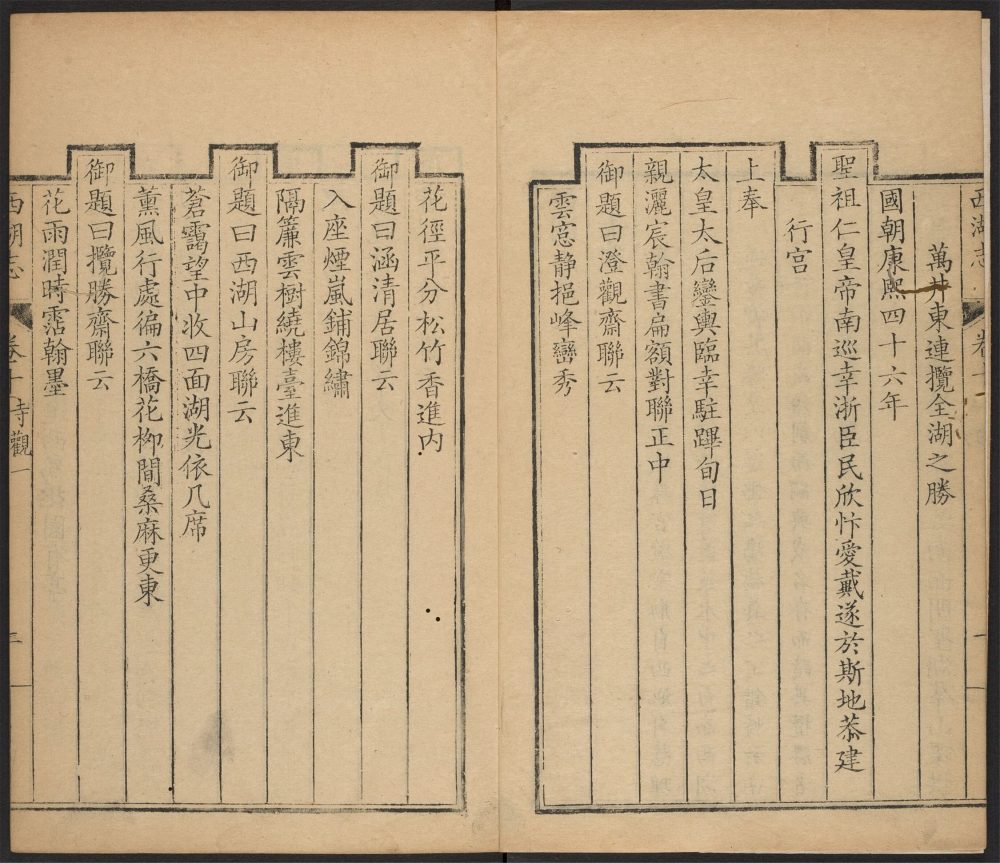 西湖志 卷十 一
萬井東連攬全湖之勝
國朝康熙四十六年
聖祖仁皇帝南巡幸浙臣民欣忭愛戴遂於斯地恭建
行宫
上奉
太皇太后鑾輿臨幸駐蹕旬日
親灑宸翰書扁額對聯正中
御題曰澄觀齋聯云
雲窓静挹峰巒秀
花徑平分松竹香進内
御題曰涵清居聯云
入座煙嵐鋪錦繡
隔簾雲樹繞樓臺進東
御題曰西湖山房聯云
蒼靄望中收四面湖光依几席
薰風行處徧六橋花栁間桑麻更東
御題曰攬勝齋聯云
花雨潤時霑翰墨
西湖志 卷十 寺觀一 二